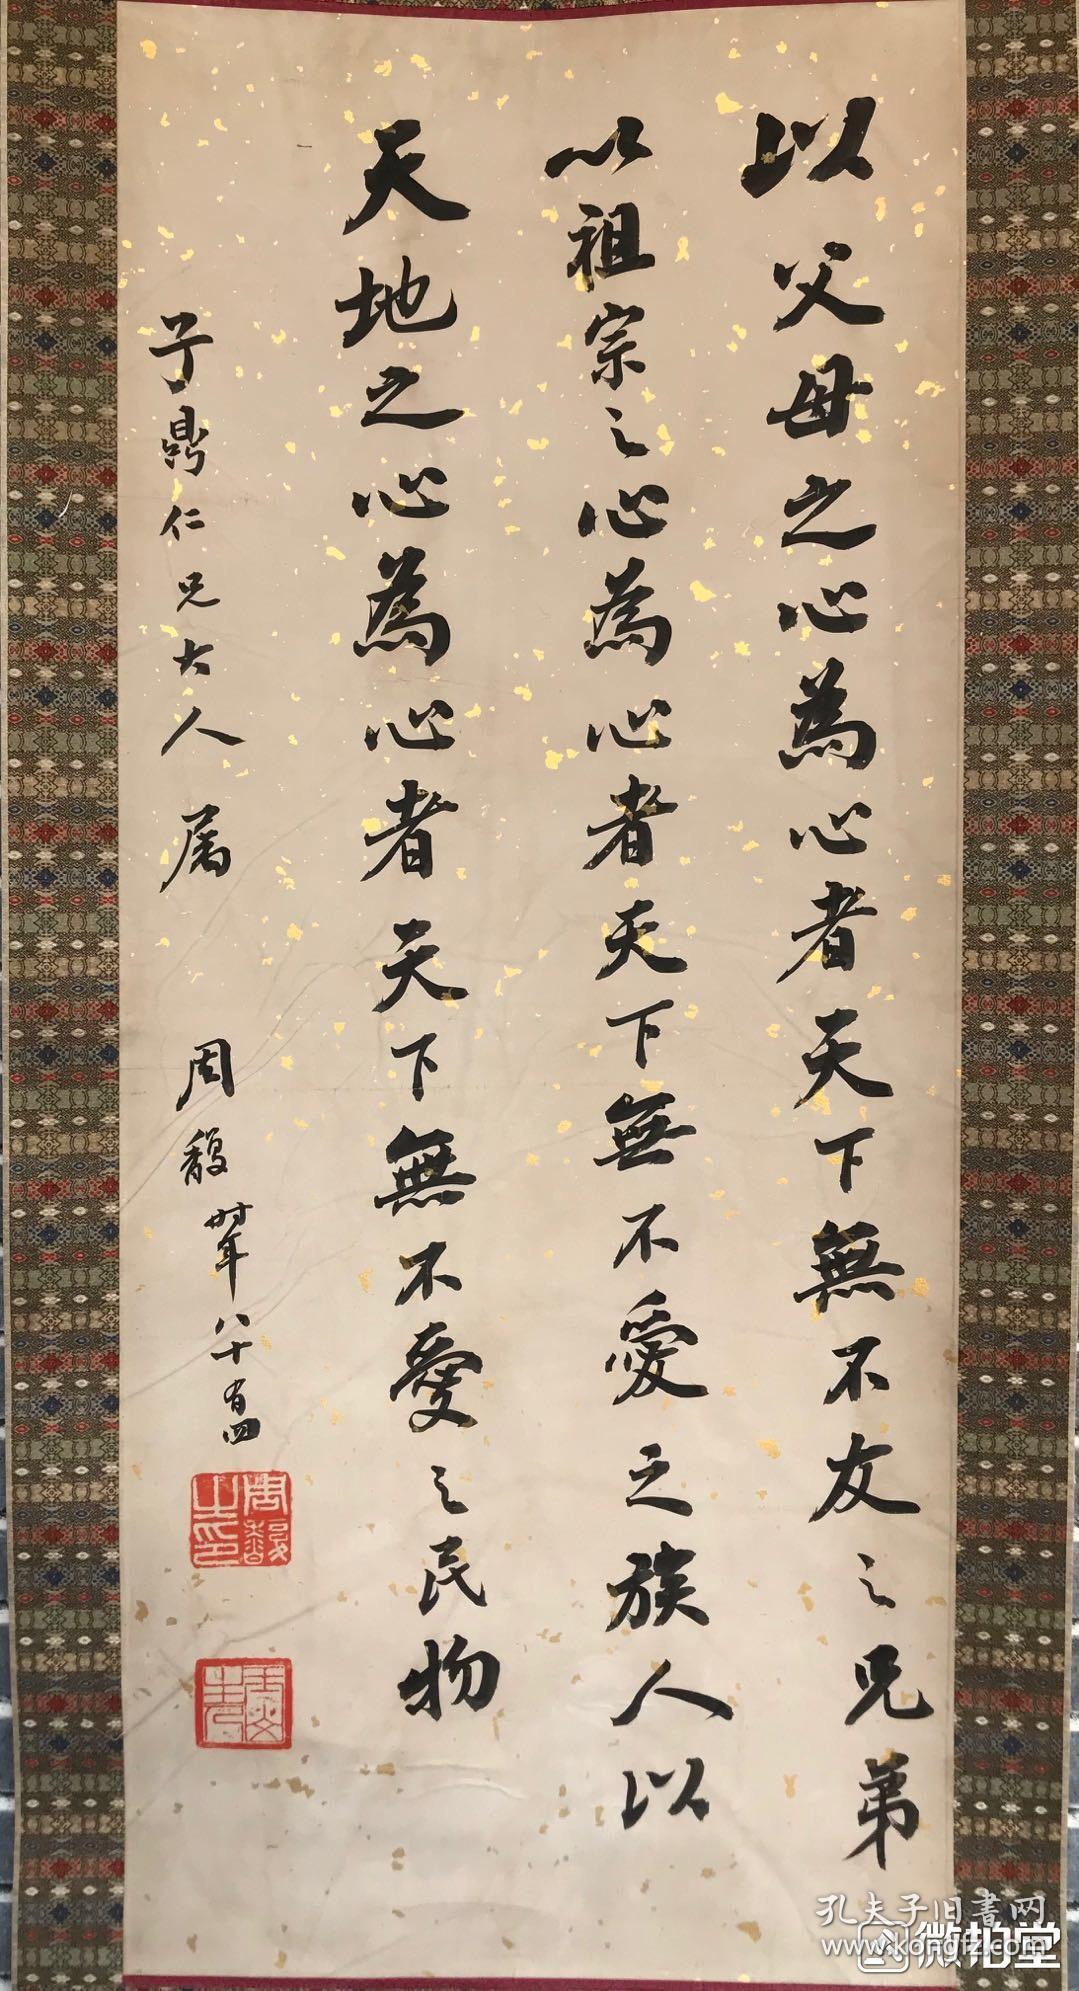 以父母之心為心者天下無不友之兄弟
以祖宗之心為心者天下無不愛之族人以
天地之心為心者天下無不愛之民物
子鼎仁兄大人属
周馥時年八十有四
周馥之印
孔夫子旧書网
www.kongfz.com
微拍堂